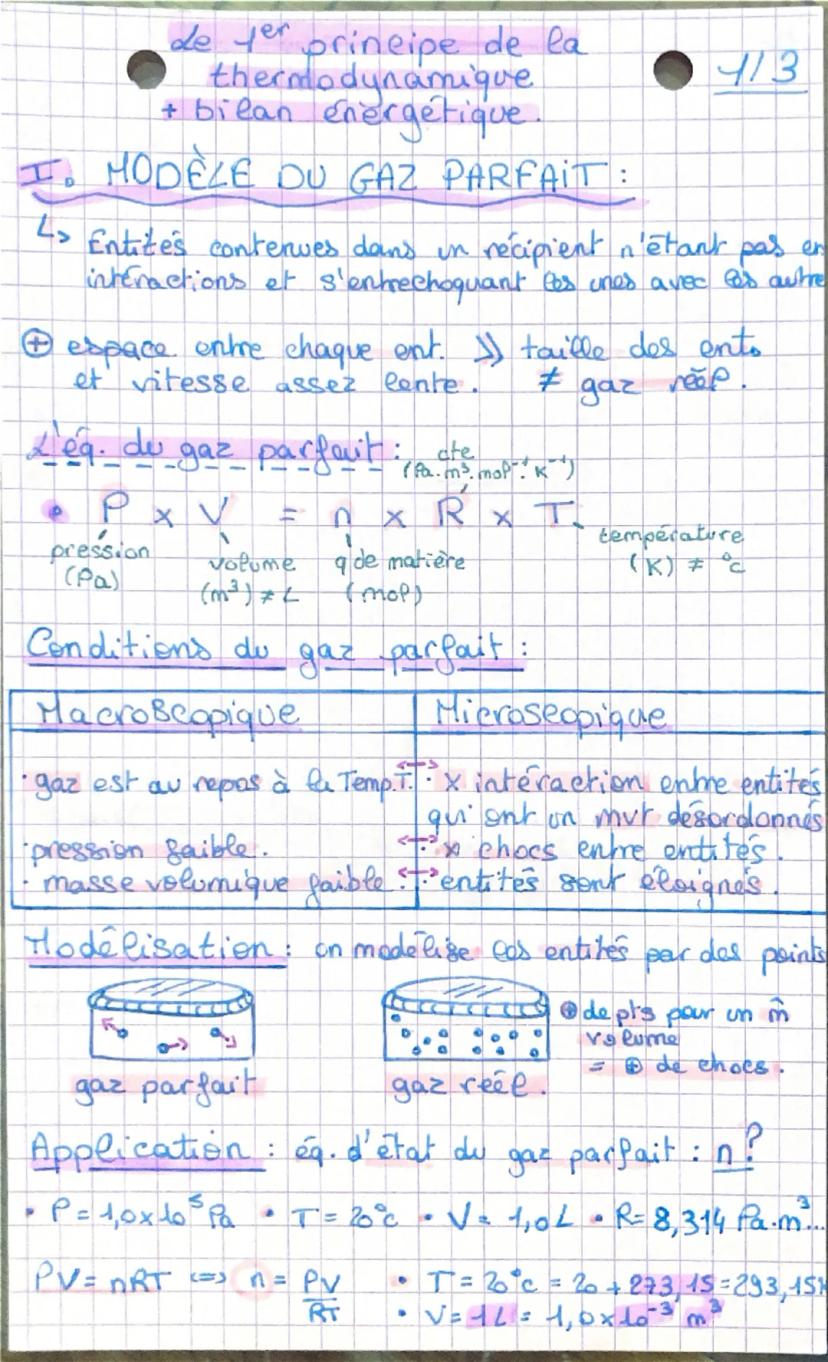 Le 1er principe de la
thermodynamique
+ bilan énergétique.
1/3
I. MODÈLE DU GAZ PARFAIT :
↳ Entités contenues dans un récipient n'étant pas en
intéractions et s'entrechoquant les unes avec les autre
⊕ espace entre chaque ent. >> taille des ent.
et vitesse assez lente. ≠ gaz réel.
L'éq. du gaz parfait :
cte
(Pa.m³.mol⁻¹.K⁻¹)
• P x V = n x R x T
pression
(Pa)
volume
(m³) ≠ L
q de matière
(mol)
température
(K) ≠ °c
Conditions du gaz parfait :
Macroscopique
Microscopique
· gaz est au repos à la Temp.T. ↔ · x intéraction entre entités
qui ont un mvt désordonnés
· pression faible. ↔ · x chocs entre entités.
· masse volumique faible. ↔ · entités sont éloignés.
Modélisation : on modélise les entités par des points
gaz parfait
gaz réel.
⊕ de pts pour un m̂
volume
= ⊕ de chocs.
Application : éq. d'état du gaz parfait : n?
• P = 1,0x10⁵ Pa • T = 20°c • V = 1,0L • R= 8,314 Pa.m³...
PV = nRT <=> n = PV/RT
• T = 20°c = 20 + 273,15 = 293,15K
• V = 1L = 1,0x10⁻³ m³